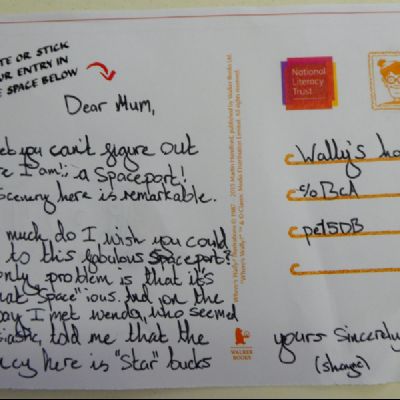 TE OR STICK
UR ENTRY IN
E SPACE BELOW
Dear Mum,
et you can't figure out
re I am!; a Spaceport!
scenery here is remarkable.
much do I wish you could
to this fabulous spaceport?
only problem is that it's
hat "Space" ious. And on the
I met wenda, who seemed
siastic, told me that the
ncy here is "Star" bucks
Where's Wally? Illustrations © 1987 - 2015 Martin Handford, published by Walker Books Ltd.
"Where's Wally?"™ & © Classic Media Distribution Limited. All rights reserved.
WALKER
BOOKS
National
Literacy
Trust
Wally's ho
c/o BCA
pe15DB
yours Sincerely
(shayne)